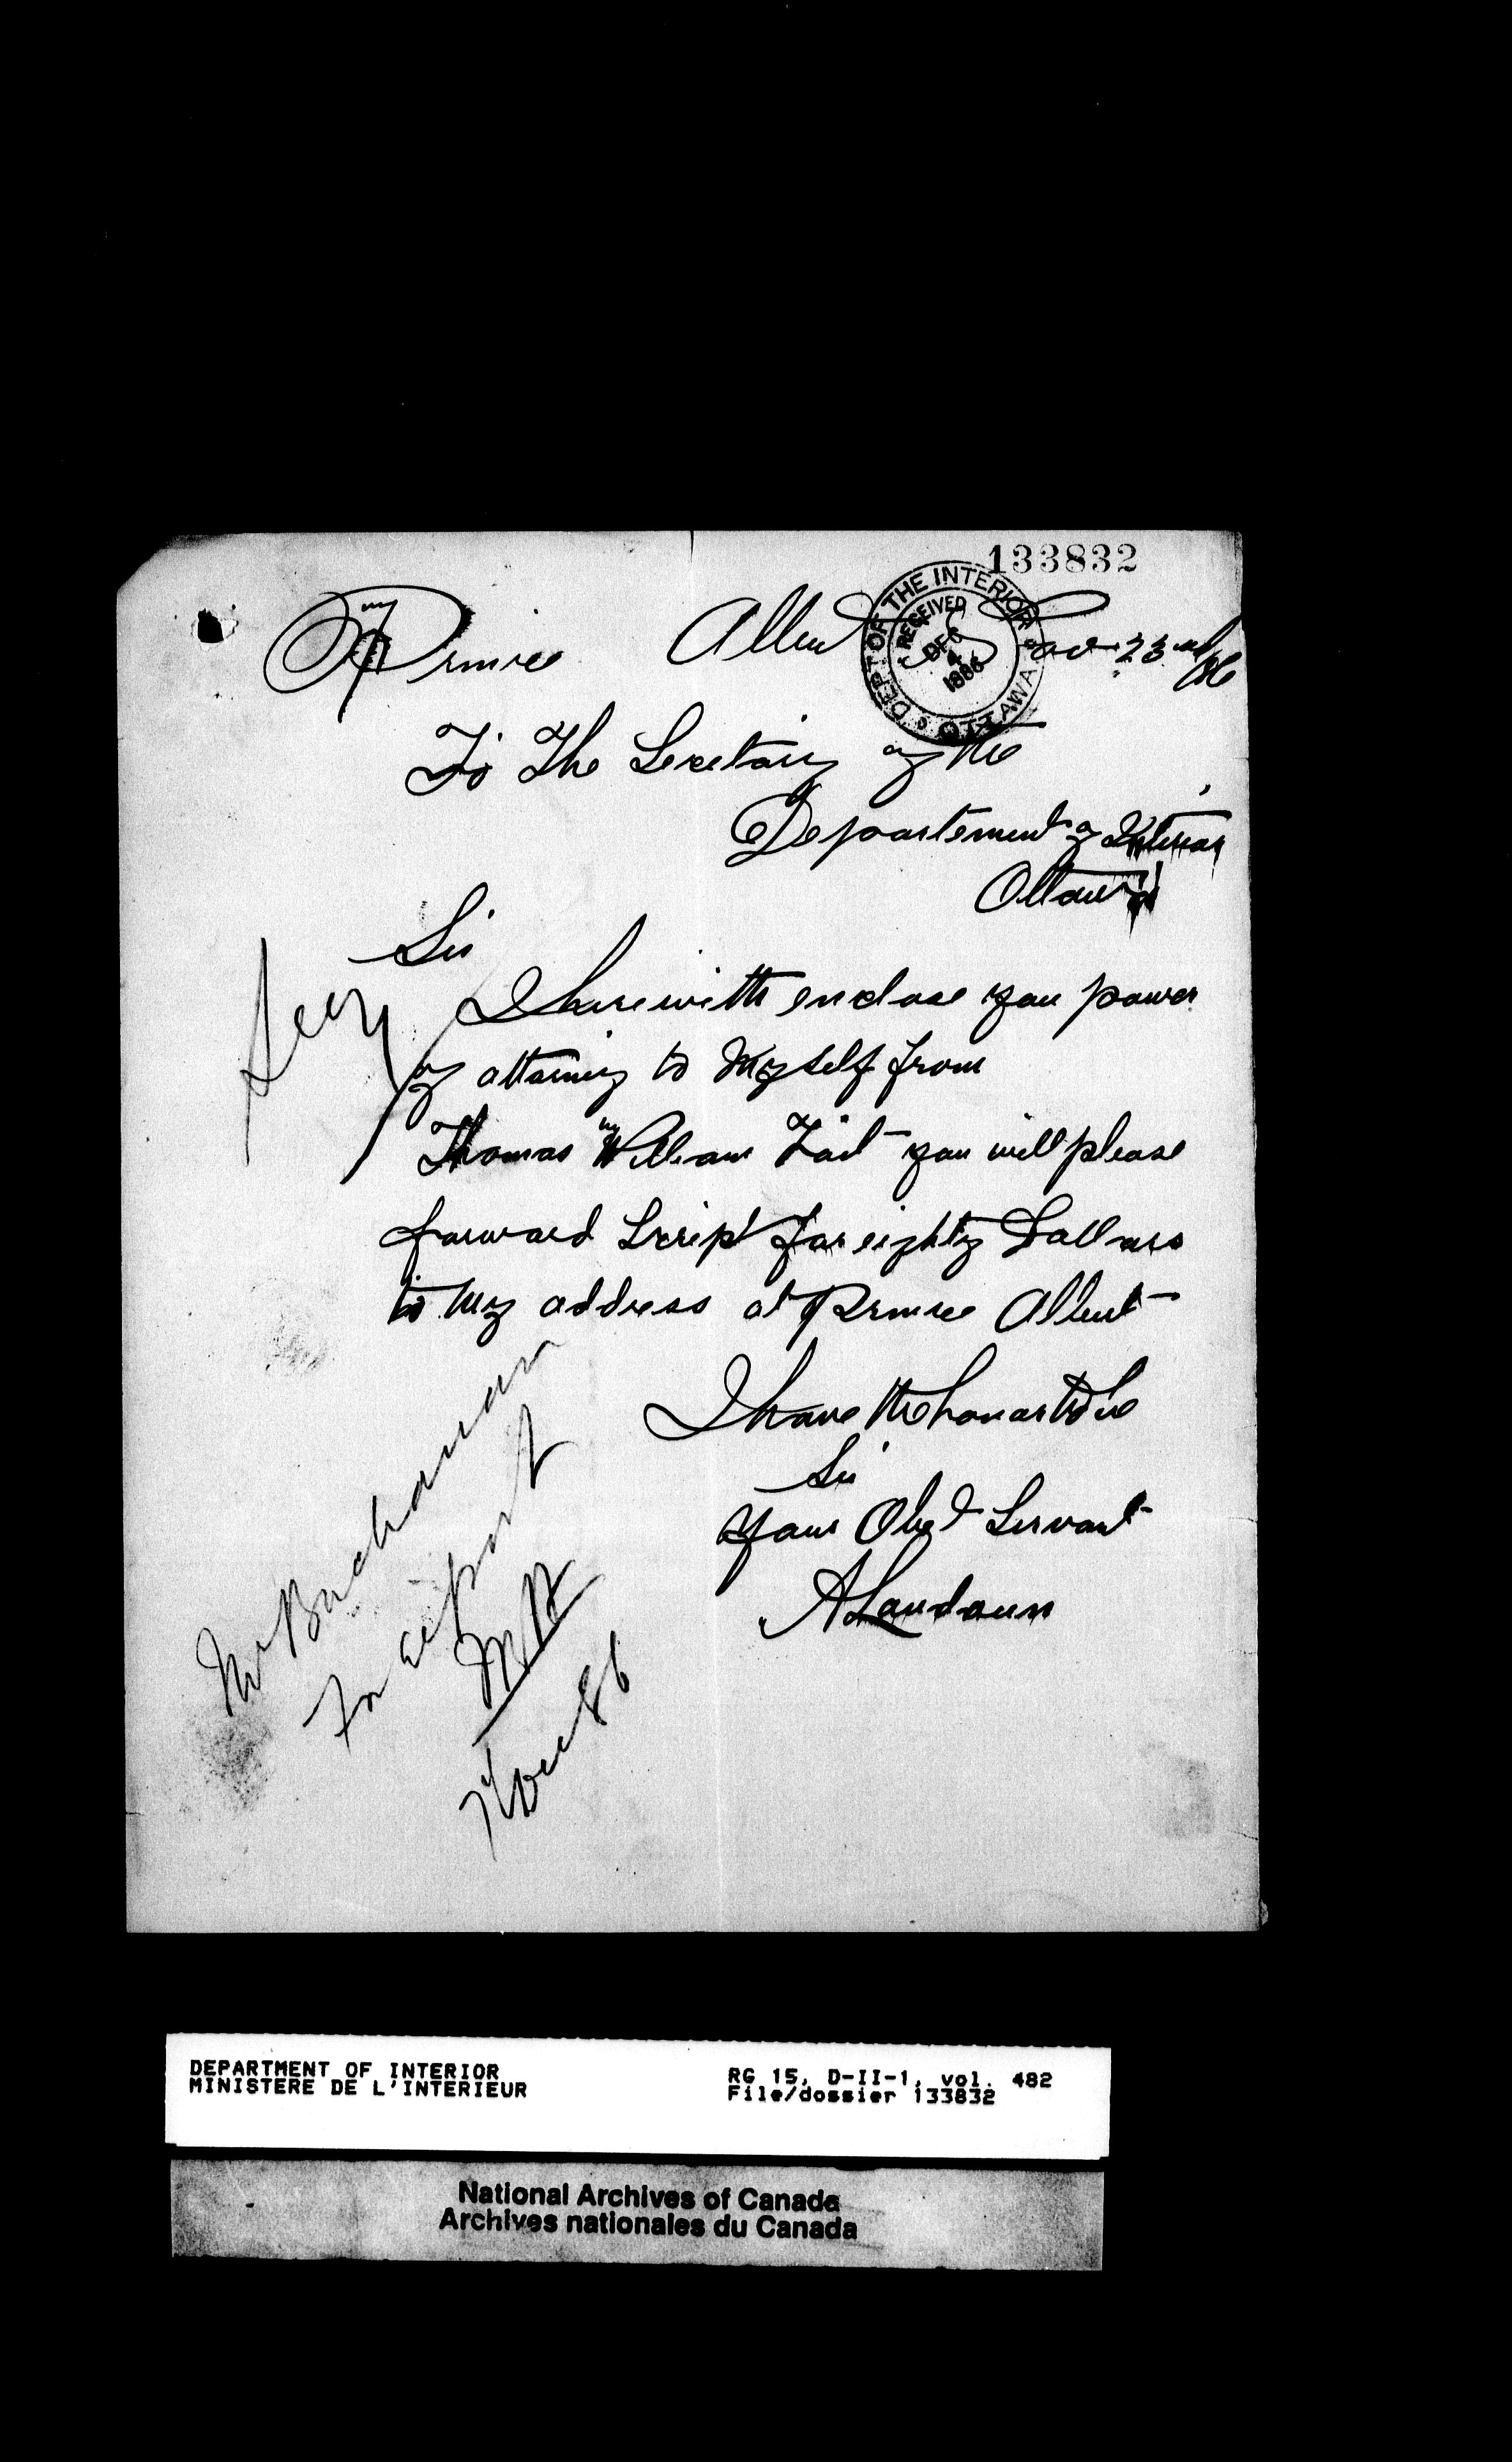 133832
Prince Albert Nov 23rd /86
DEPT OF THE INTERIOR
RECEIVED
DEC
4
1886
OTTAWA
To The Secretary of the
Departement of Interior
Ottawa
Sir
I herewith enclose you power
of attorney to Myself from
Thomas William Tait you will please
forward Script for eighty Dollars
to My address at Prince Albert
I have the honor to be
Sir
Your Obed Servant
A Loudoun
Mr Buchanan
For report
Dec 86
DEPARTMENT OF INTERIOR
MINISTERE DE L'INTERIEUR
RG 15, D-II-1, vol. 482
File/dossier 133832
National Archives of Canada
Archives nationales du Canada